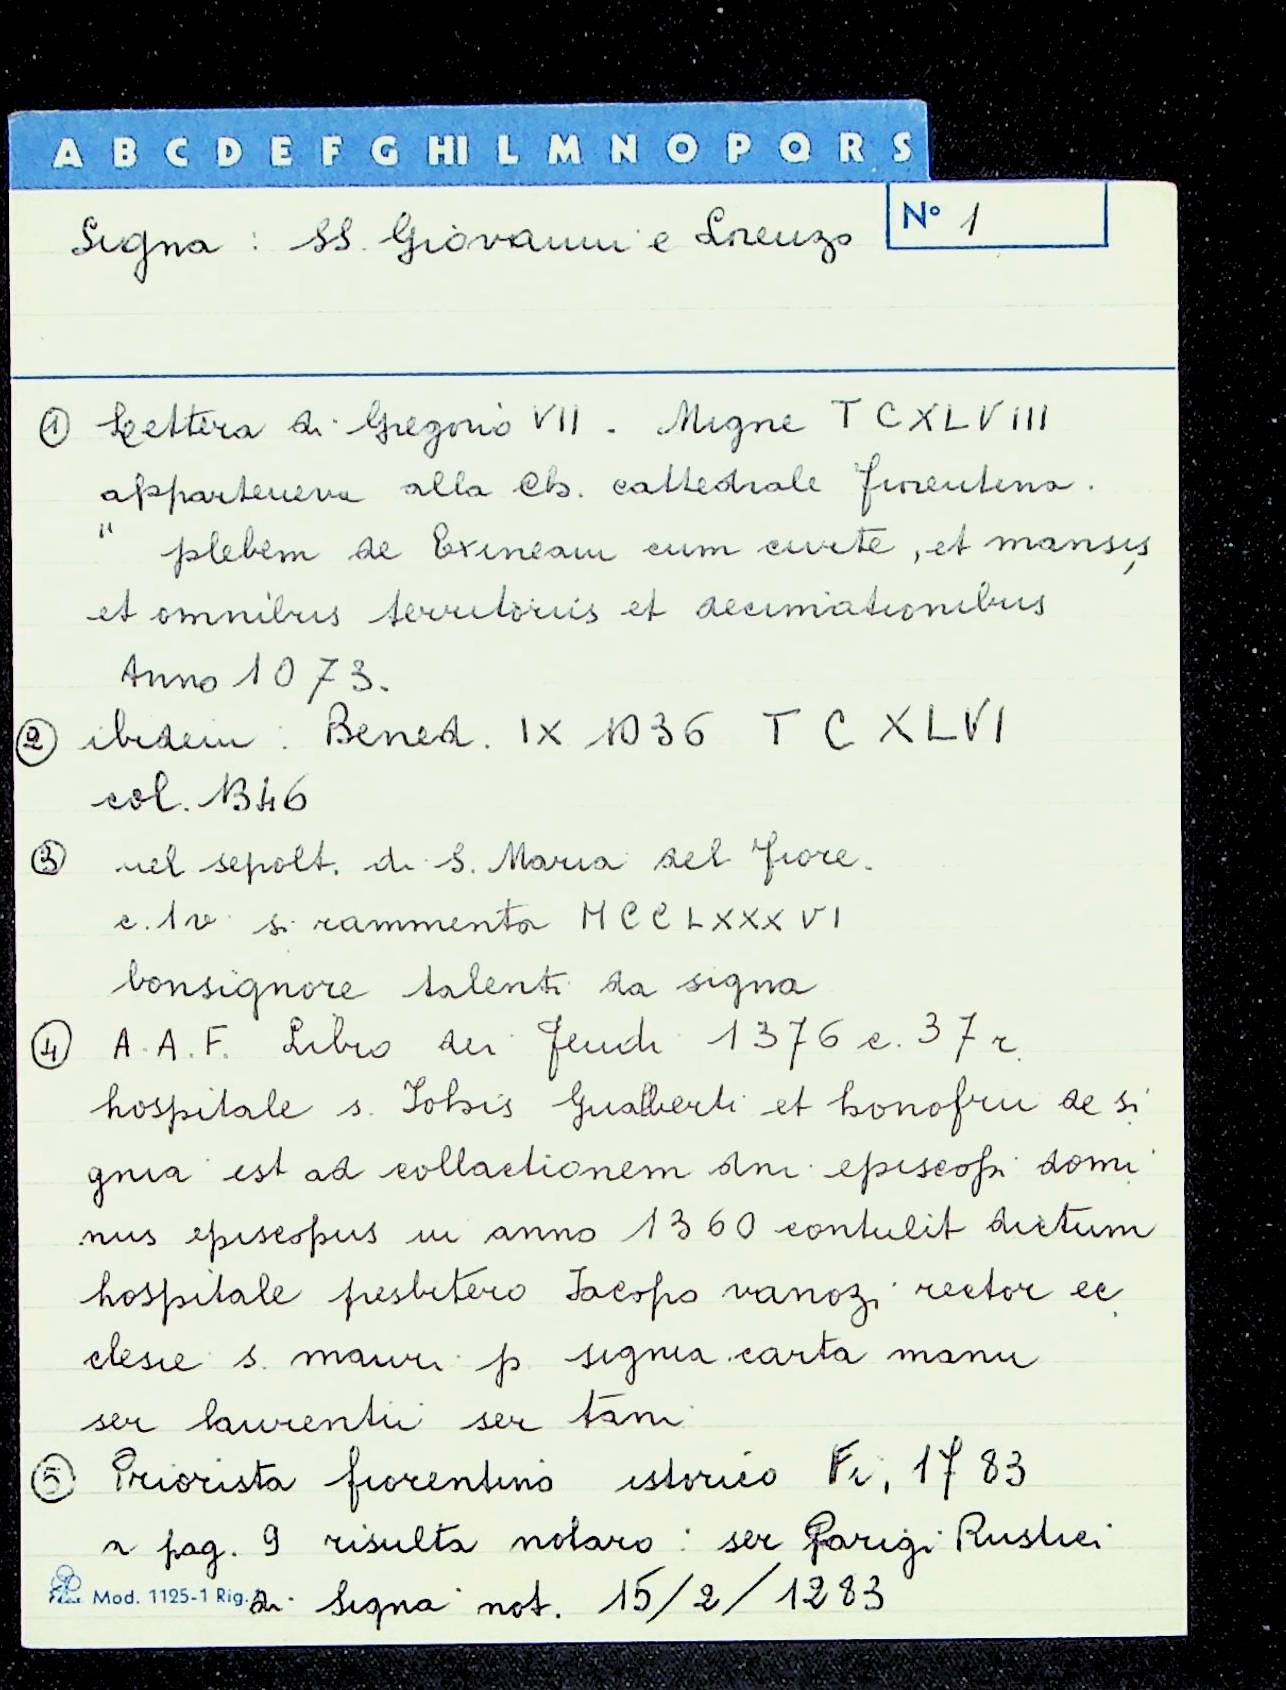 A B C D E F G HI L M N O P Q R S
Signa : SS. Giovanni e Lorenzo
N° 1
① Lettera di Gregorio VII. Migne T CXLVIII
apparteneva alla Ch. cattedrale fiorentina.
" plebem de Exineam cum curte, et mansis,
et omnibus territoriis et decimationibus
Anno 1073.
② ibidem : Bened. IX 1036 T C XLVI
col. 1346
③ nel sepolt. di S. Maria del Fiore.
c. 1v si rammenta MCCLXXXVI
bonsignore talenti da signa
④ A.A.F. Libro dei Feudi 1376 c. 37 r.
hospitale s. Johis Gualberti et honofrii de si
gnia est ad collactionem dni episcopi domi
nus episcopus in anno 1360 contulit dictum
hospitale presbitero Iacopo vanozi rector ec
clesie s. mauri p signia carta manu
ser laurentii ser tani
⑤ Priorista fiorentino istorico Fi, 1783
a pag. 9 risulta notaro : ser Parigi Rustici
Mod. 1125-1 Rig. di Signa not. 15/2/1283